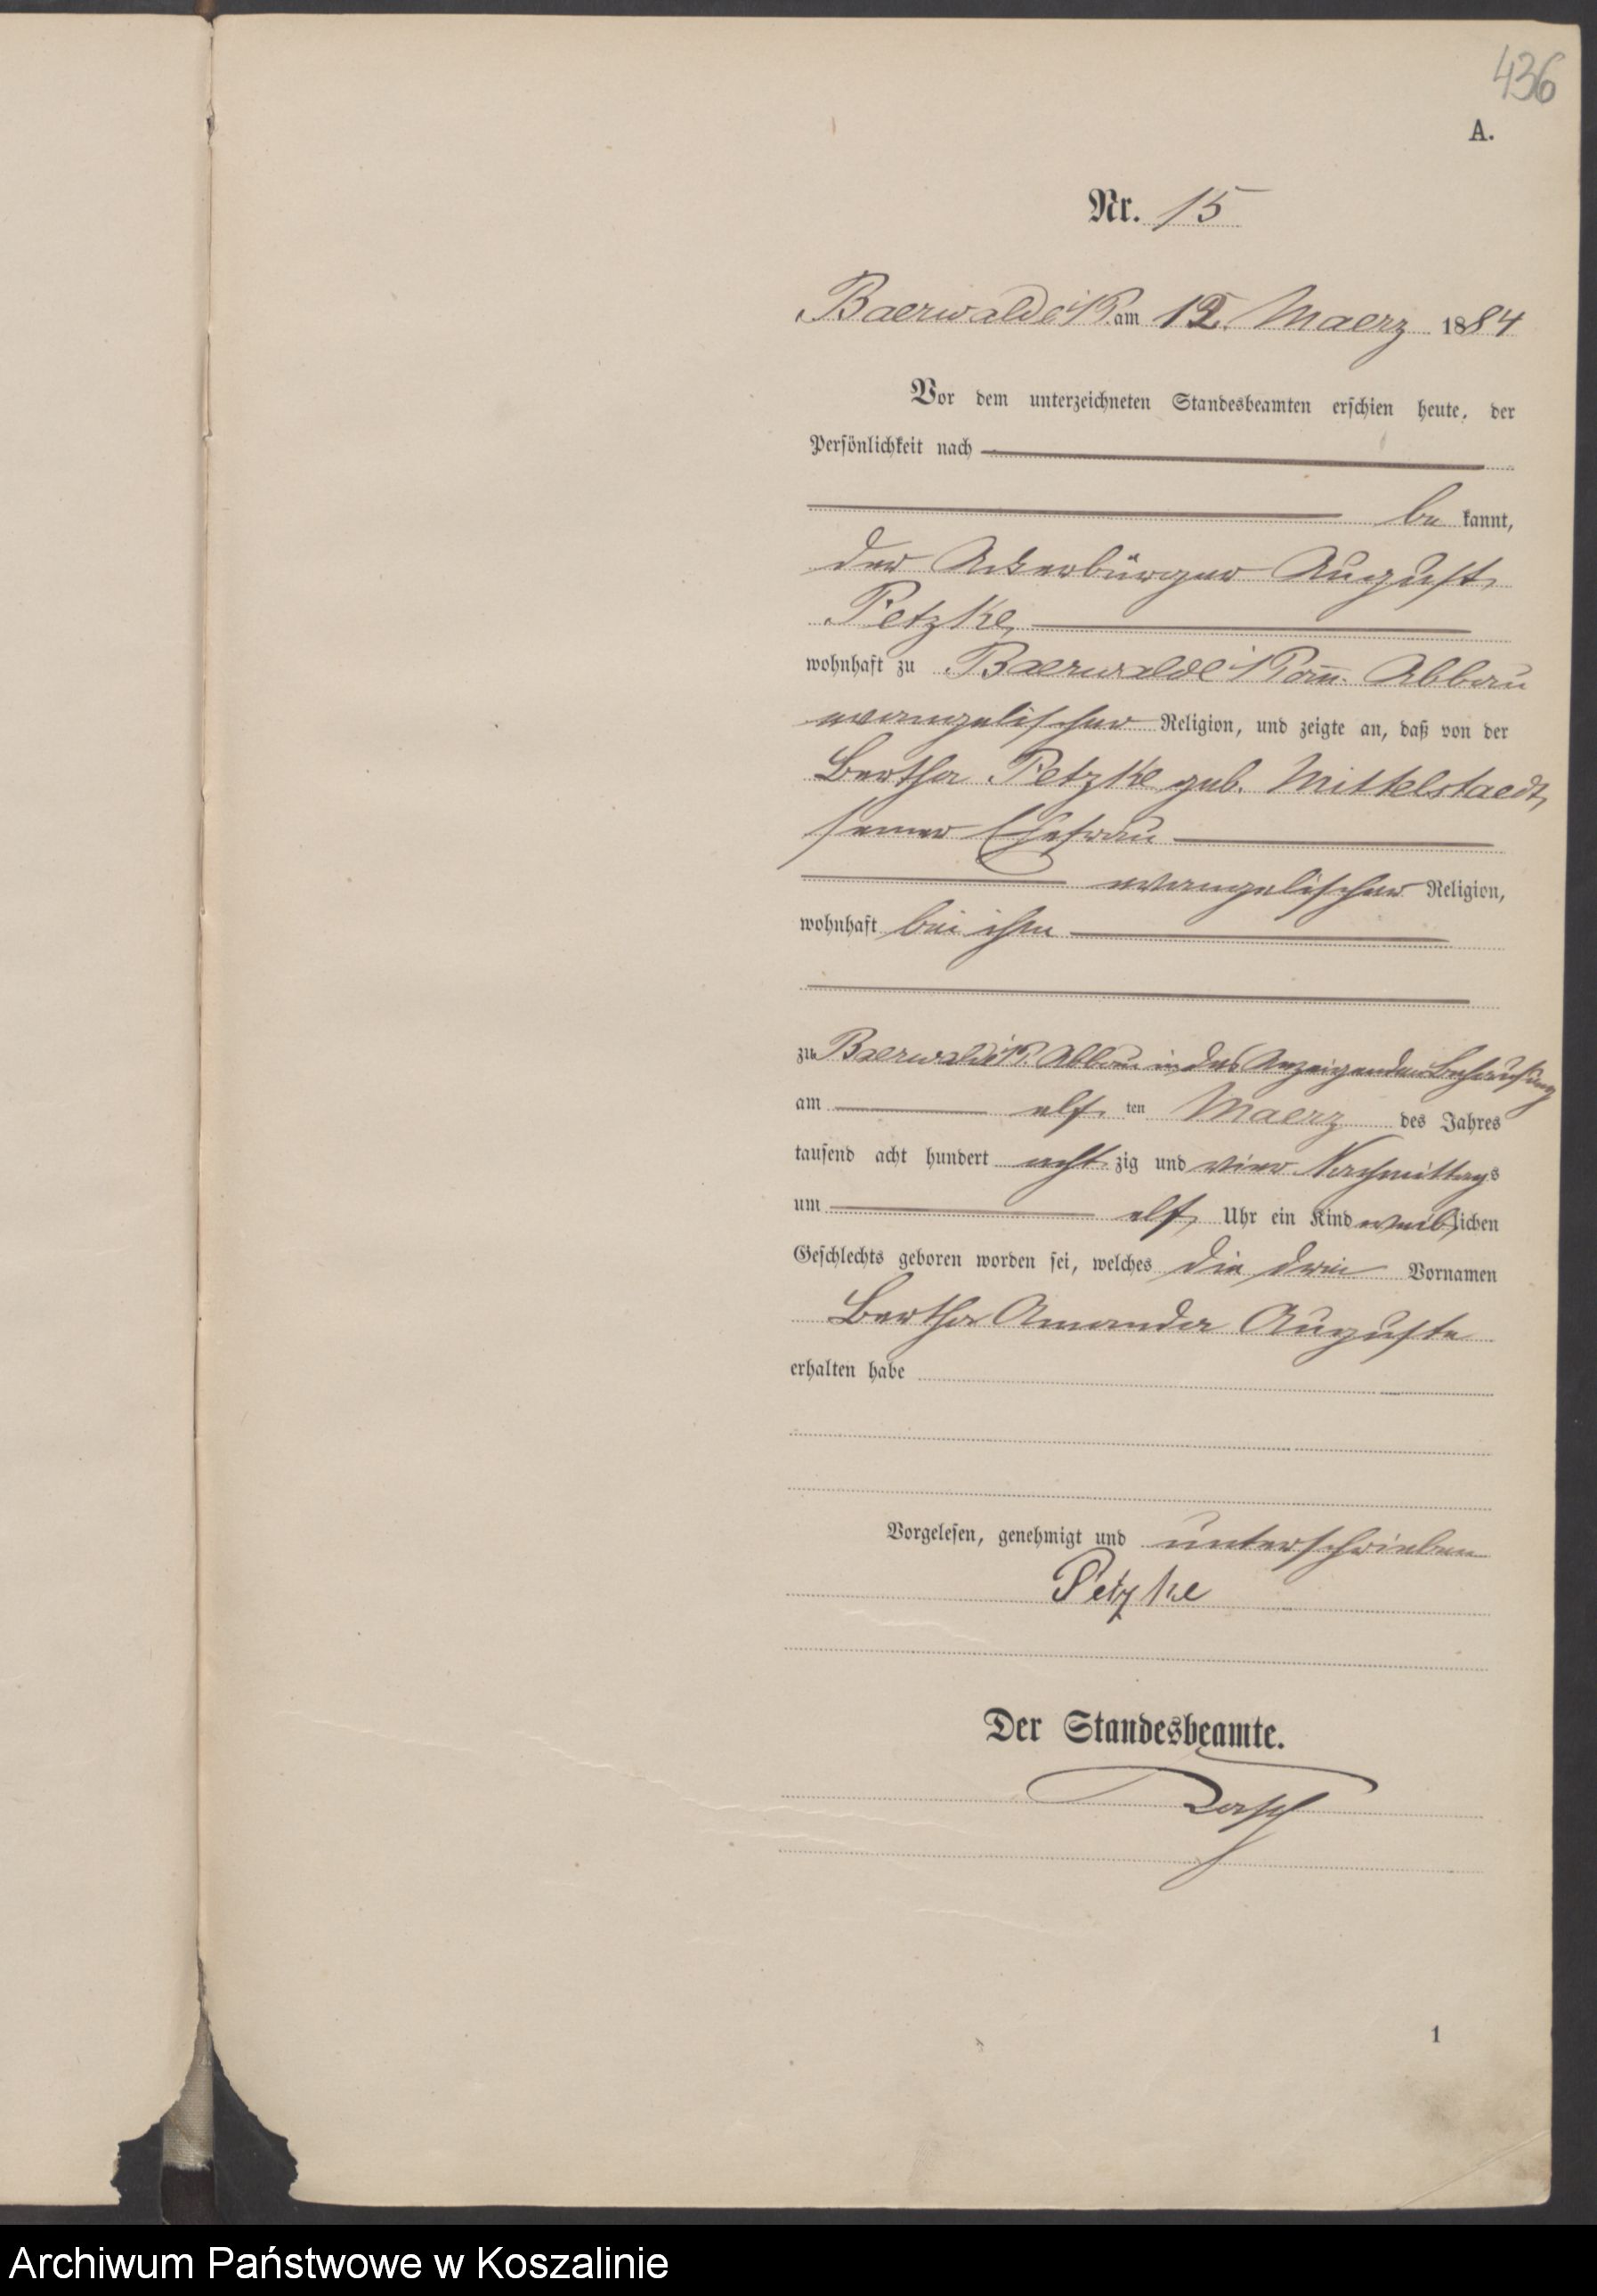 436
A.
Nr. 15
Baerwalde i/P. am 12. Maerz 1884
Vor dem unterzeichneten Standesbeamten erschien heute, der
Persönlichkeit nach
be kannt,
der Ackerbürger August
Petzke,
wohnhaft zu Baerwalde i/Pom. Abbau
evangelischer Religion, und zeigte an, daß von der
Bertha Petzke geb. Mittelstaedt,
seiner Ehefrau
evangelischer Religion,
wohnhaft bei ihm
zu Baerwalde i/P. Abbau in des Anzeigenden Behausung
am elf ten Maerz des Jahres
tausend acht hundert acht zig und vier Nachmittags
um elf Uhr ein Kind weiblichen
Geschlechts geboren worden sei, welches die drei Vornamen
Bertha Amanda Auguste
erhalten habe
Vorgelesen, genehmigt und unterschrieben
Petzke
Der Standesbeamte.
1
Archiwum Państwowe w Koszalinie